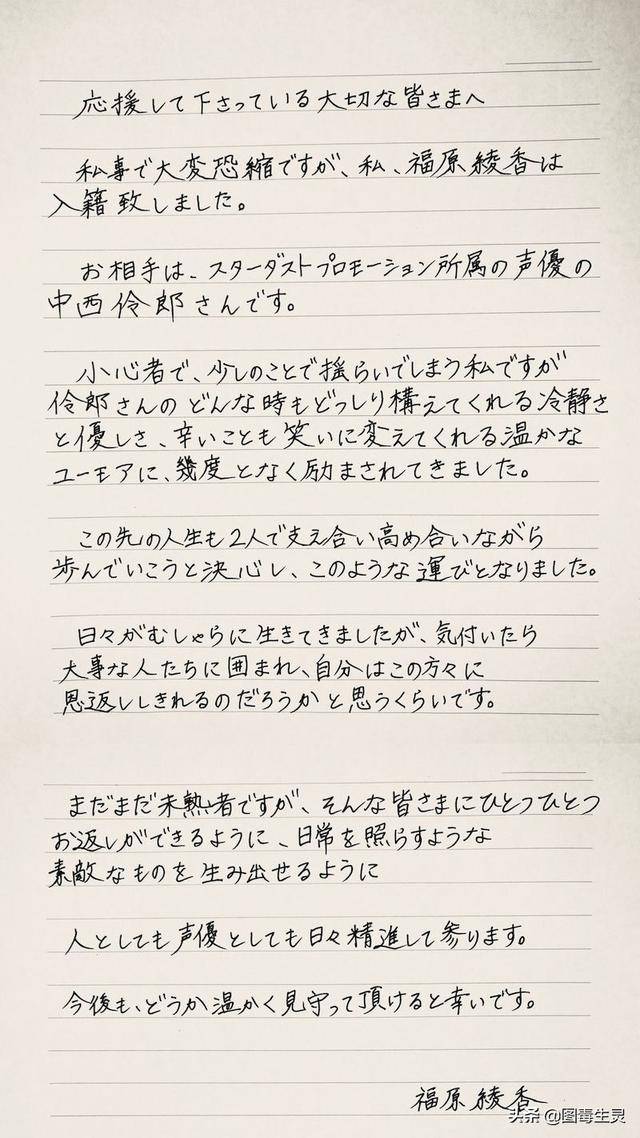 応援して下さっている大切な皆さまへ
私事で大変恐縮ですが、私、福原綾香は
入籍致しました。
お相手は、スターダストプロモーション所属の声優の
中西伶郎さんです。
小心者で、少しのことで揺らいでしまう私ですが
伶郎さんのどんな時もどっしり構えてくれる冷静さ
と優しさ、辛いことも笑いに変えてくれる温かな
ユーモアに、幾度となく励まされてきました。
この先の人生も2人で支え合い高め合いながら
歩んでいこうと決心し、このような運びとなりました。
日々がむしゃらに生きてきましたが、気付いたら
大事な人たちに囲まれ、自分はこの方々に
恩返ししきれるのだろうかと思うくらいです。
まだまだ未熟者ですが、そんな皆さまにひとつひとつ
お返しができるように、日常を照らすような
素敵なものを生み出せるように
人としても声優としても日々精進して参ります。
今後も、どうか温かく見守って頂けると幸いです。
福原綾香
头条 @图毒生灵